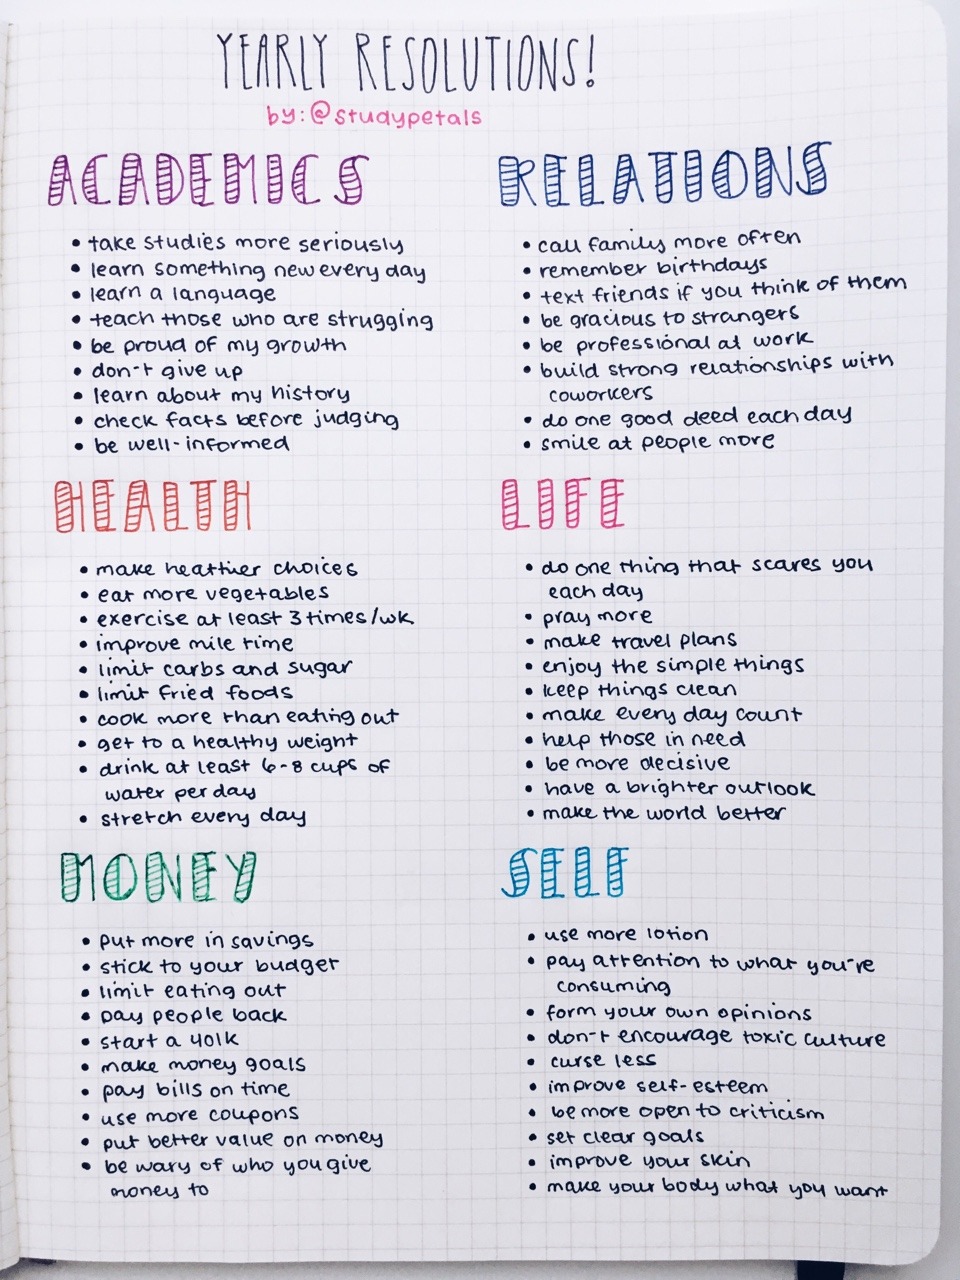 YEARLY RESOLUTIONS!
by:@studypetals
ACADEMICS
• take studies more seriously
• learn something new every day
• learn a language
• teach those who are strugging
• be proud of my growth
• don't give up
• learn about my history
• check facts before judging
• be well-informed
RELATIONS
• call family more often
• remember birthdays
• text friends if you think of them
• be gracious to strangers
• be professional at work
• build strong relationships with
coworkers
• do one good deed each day
• smile at people more
HEALTH
• make healthier choices
• eat more vegetables
• exercise at least 3 times/wk
• improve mile time
• limit carbs and sugar
• limit fried foods
• cook more than eating out
• get to a healthy weight
• drink at least 6-8 cups of
water per day
• stretch every day
LIFE
• do one thing that scares you
each day
• pray more
• make travel plans
• enjoy the simple things
• keep things clean
• make every day count
• help those in need
• be more decisive
• have a brighter outlook
• make the world better
MONEY
• put more in savings
• stick to your budget
• limit eating out
• pay people back
• start a 401k
• make money goals
• pay bills on time
• use more coupons
• put better value on money
• be wary of who you give
money to
SELF
• use more lotion
• pay attention to what you're
consuming
• form your own opinions
• don't encourage toxic culture
• curse less
• improve self-esteem
• be more open to criticism
• set clear goals
• improve your skin
• make your body what you want